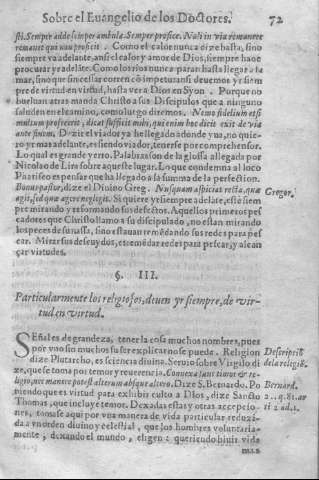 Sobre el Euangelio de los Doctores. 72
sti. Semper adde semper ambola. Semper profice. Noli in via remanere
remanet qui non proficit. Como el calor nunca dize basta, sino
siempre va adelante, assi el calor y amor de Dios, siempre ha de
procurar yr adelãte. Como los rios nunca paran hasta llegar a la
mar, sino que sin cessar corren cõ impetu: assi deuemos yr siem
pre de virtud en virtud, hasta ver a Dios en Syon. Porque no
bueluan atras manda Christo a sus Discipulos que a ninguno
saluden en el camino, como luego diremos. Nemo fidelium est
multum profecerit, dicat sufficit mihi, qui enim hoc dicit exit de via
ante finem. Dezir el viador ya he llegado a donde yua, no quie-
ro yr mas adelante, es siendo viador, tenerse por comprehensor.
Lo qual es grande yerro. Palabras son de la glossa allegada por
Nicolao de Lira sobre aqueste lugar. Lo que condemna al loco
Phariseo es pensar que ha llegado a la summa de la perfection.
Bonus pastor, dize el Diuino Greg. Nusquam aspicias recta, quæ
agis, sed quæ agere neglegis. Si quiere yr siempre adelãte, estè siem
pre mirando y reformando sus defectos. Aquellos primeros pes
cadores que Christo llamo a su discipulado, no estan mirando
los peces de su nassa, sino estauan remẽdando sus redes para pes
car. Mirar sus descuydos, es remẽdar redes para pescar, y alcan
çar virtudes.
Gregor.
§. III.
Particularmente los religiosos, deuen yr siempre, de vir-
tud en virtud.
SEñal es de grandeza, tener la cosa muchos nombres, pues
por vno sin muchos su ser explicar no se pueda. Religion
dize Plutarcho, es sciencia diuina. Seruio sobre Virgilio di
ze, que se toma por temor y reuerencia. Connexa sunt timor & re-
ligio, nec manere potest alterum absque altero. Dize S. Bernardo. Po
niendo que es virtud para exhibir culto a Dios, dize Sancto
Thomas, que incluye temor. Dexadas estas y otras accepcio-
nes, tomase aqui por vna manera de vida particular reduzi-
da a vn orden diuino y celestial, que los hombres voluntaria-
mente, dexando el mundo, eligen: queriendo biuir vida
Descriptiõ
de la religiõ.
Bernard.
2. 2. q. 81. ar
ti 2 ad. 1.
mas